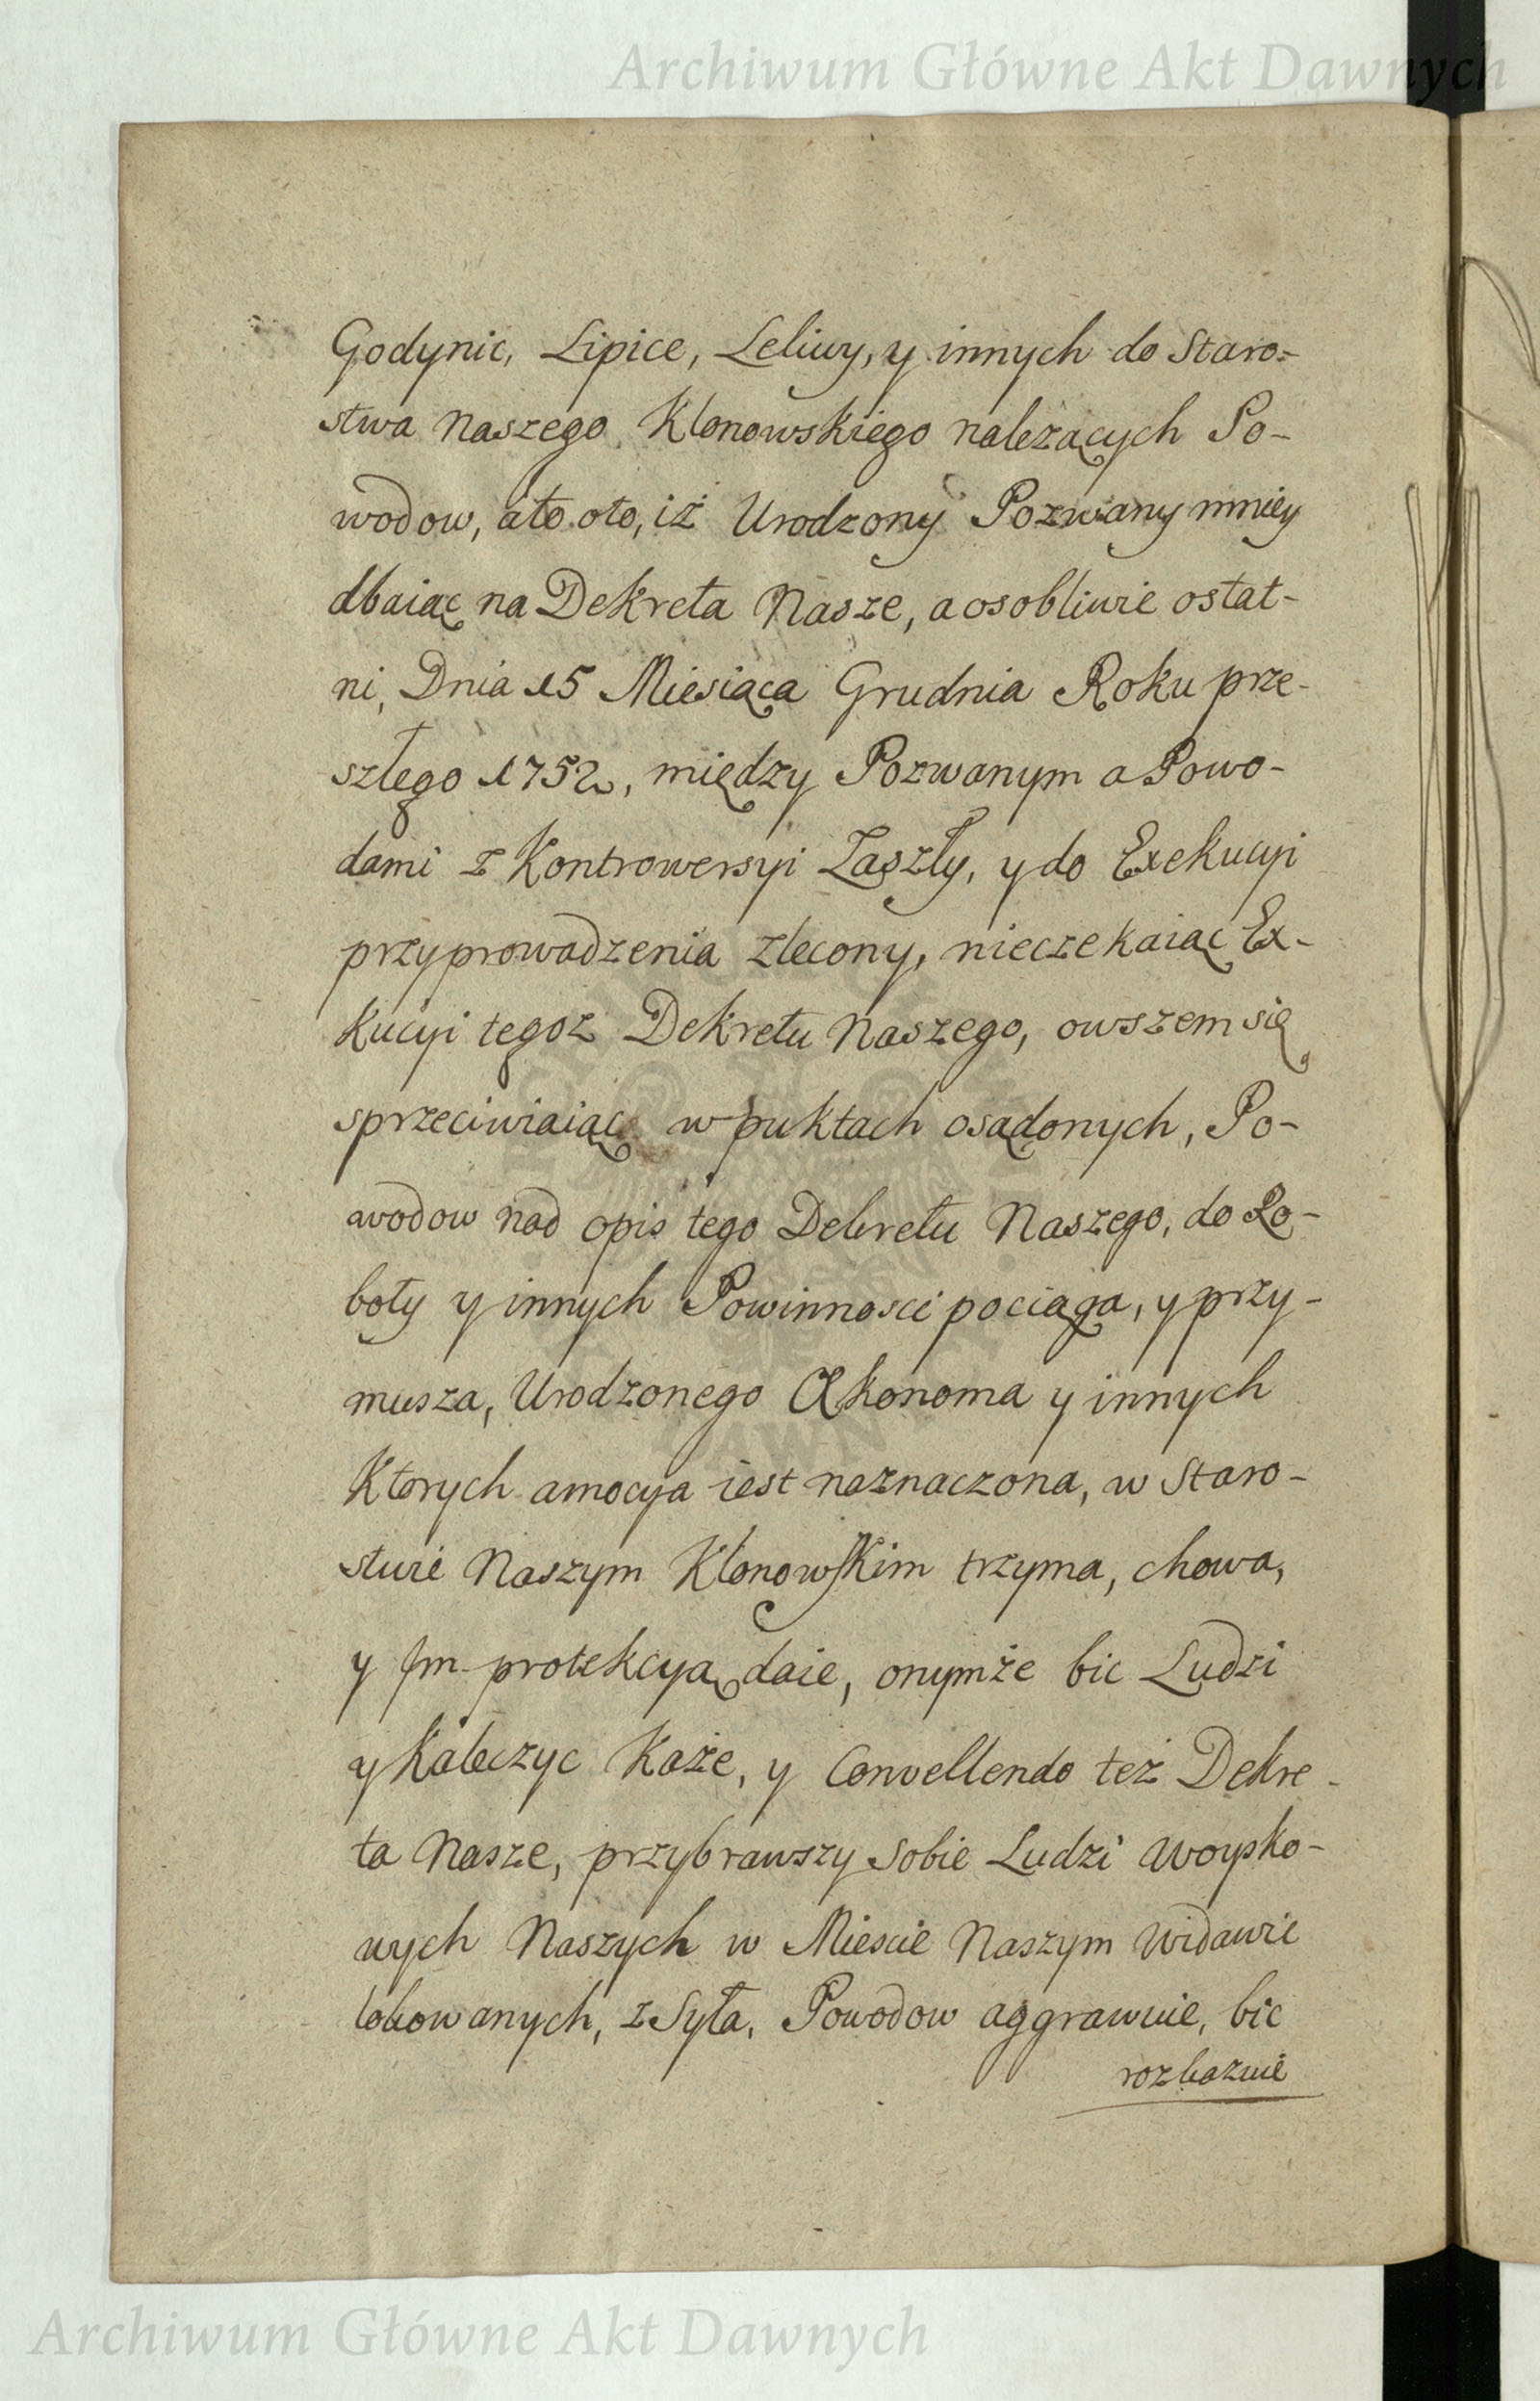 Archiwum Główne Akt Dawnych
Godynic, Lipice, Leliwy, y innych do Staro=
stwa Naszego Klonowskiego należących Po-
wodow, ato oto, iż Urodzony Pozwany mniey
dbaiąc na Dekreta Nasze, a osobliwie ostat-
ni, Dnia 15 Miesiąca Grudnia Roku prze-
szłego 1752, między Pozwanym a Powo-
dami z Kontrowersyi Zaszły, y do Exekucyi
przyprowadzenia zlecony, nieczekaiąc Ex-
kucyi tegoż Dekretu Naszego, owszem się
sprzeciwiaiąc w puktach osądonych, Po-
wodow nad opis tego Dekretu Naszego, do Ro-
boty y innych Powinnosci pociąga, y przy-
musza, Urodzonego Œkonoma y innych
Ktorych amocya iest naznaczona, w Staro-
stwie Naszym Klonowskim trzyma, chowa,
y Im protekcyą daie, onymże bic Ludzi
y Kaleczyc Każe, y Convellendo też Dekre-
ta Nasze, przybrawszy sobie Ludzi Woysko-
wych Naszych w Miescie Naszym Widawie
lokowanych, z Syła, Powodow aggrawuie, bic
rozkazuie
Archiwum Główne Akt Dawnych